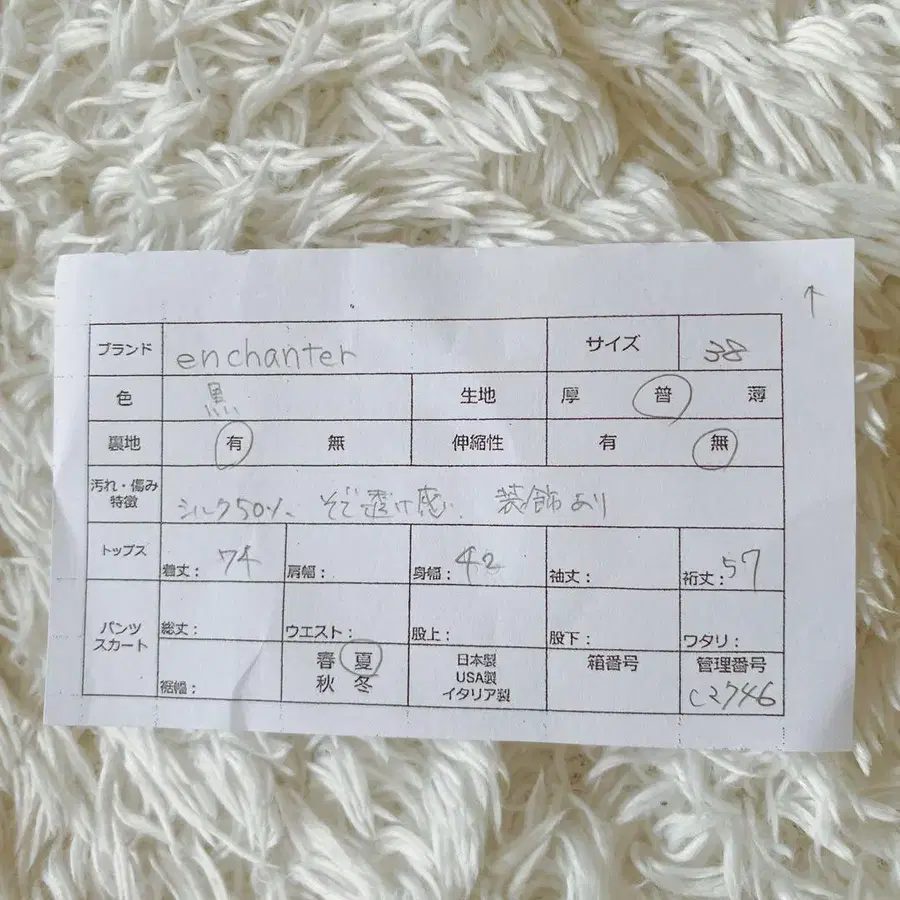 ↑
ブランド enchanter サイズ 38
色 黒 生地 厚 普 薄
裏地 有 無 伸縮性 有 無
汚れ・傷み
特徴 シルク50%、そで透け感、装飾あり
トップス 着丈: 74 肩幅: 身幅: 42 袖丈: 裄丈: 57
パンツ
スカート 総丈: ウエスト: 股上: 股下: ワタリ:
裾幅: 春 夏
秋 冬
日本製
USA製
イタリア製
箱番号
管理番号
C2746